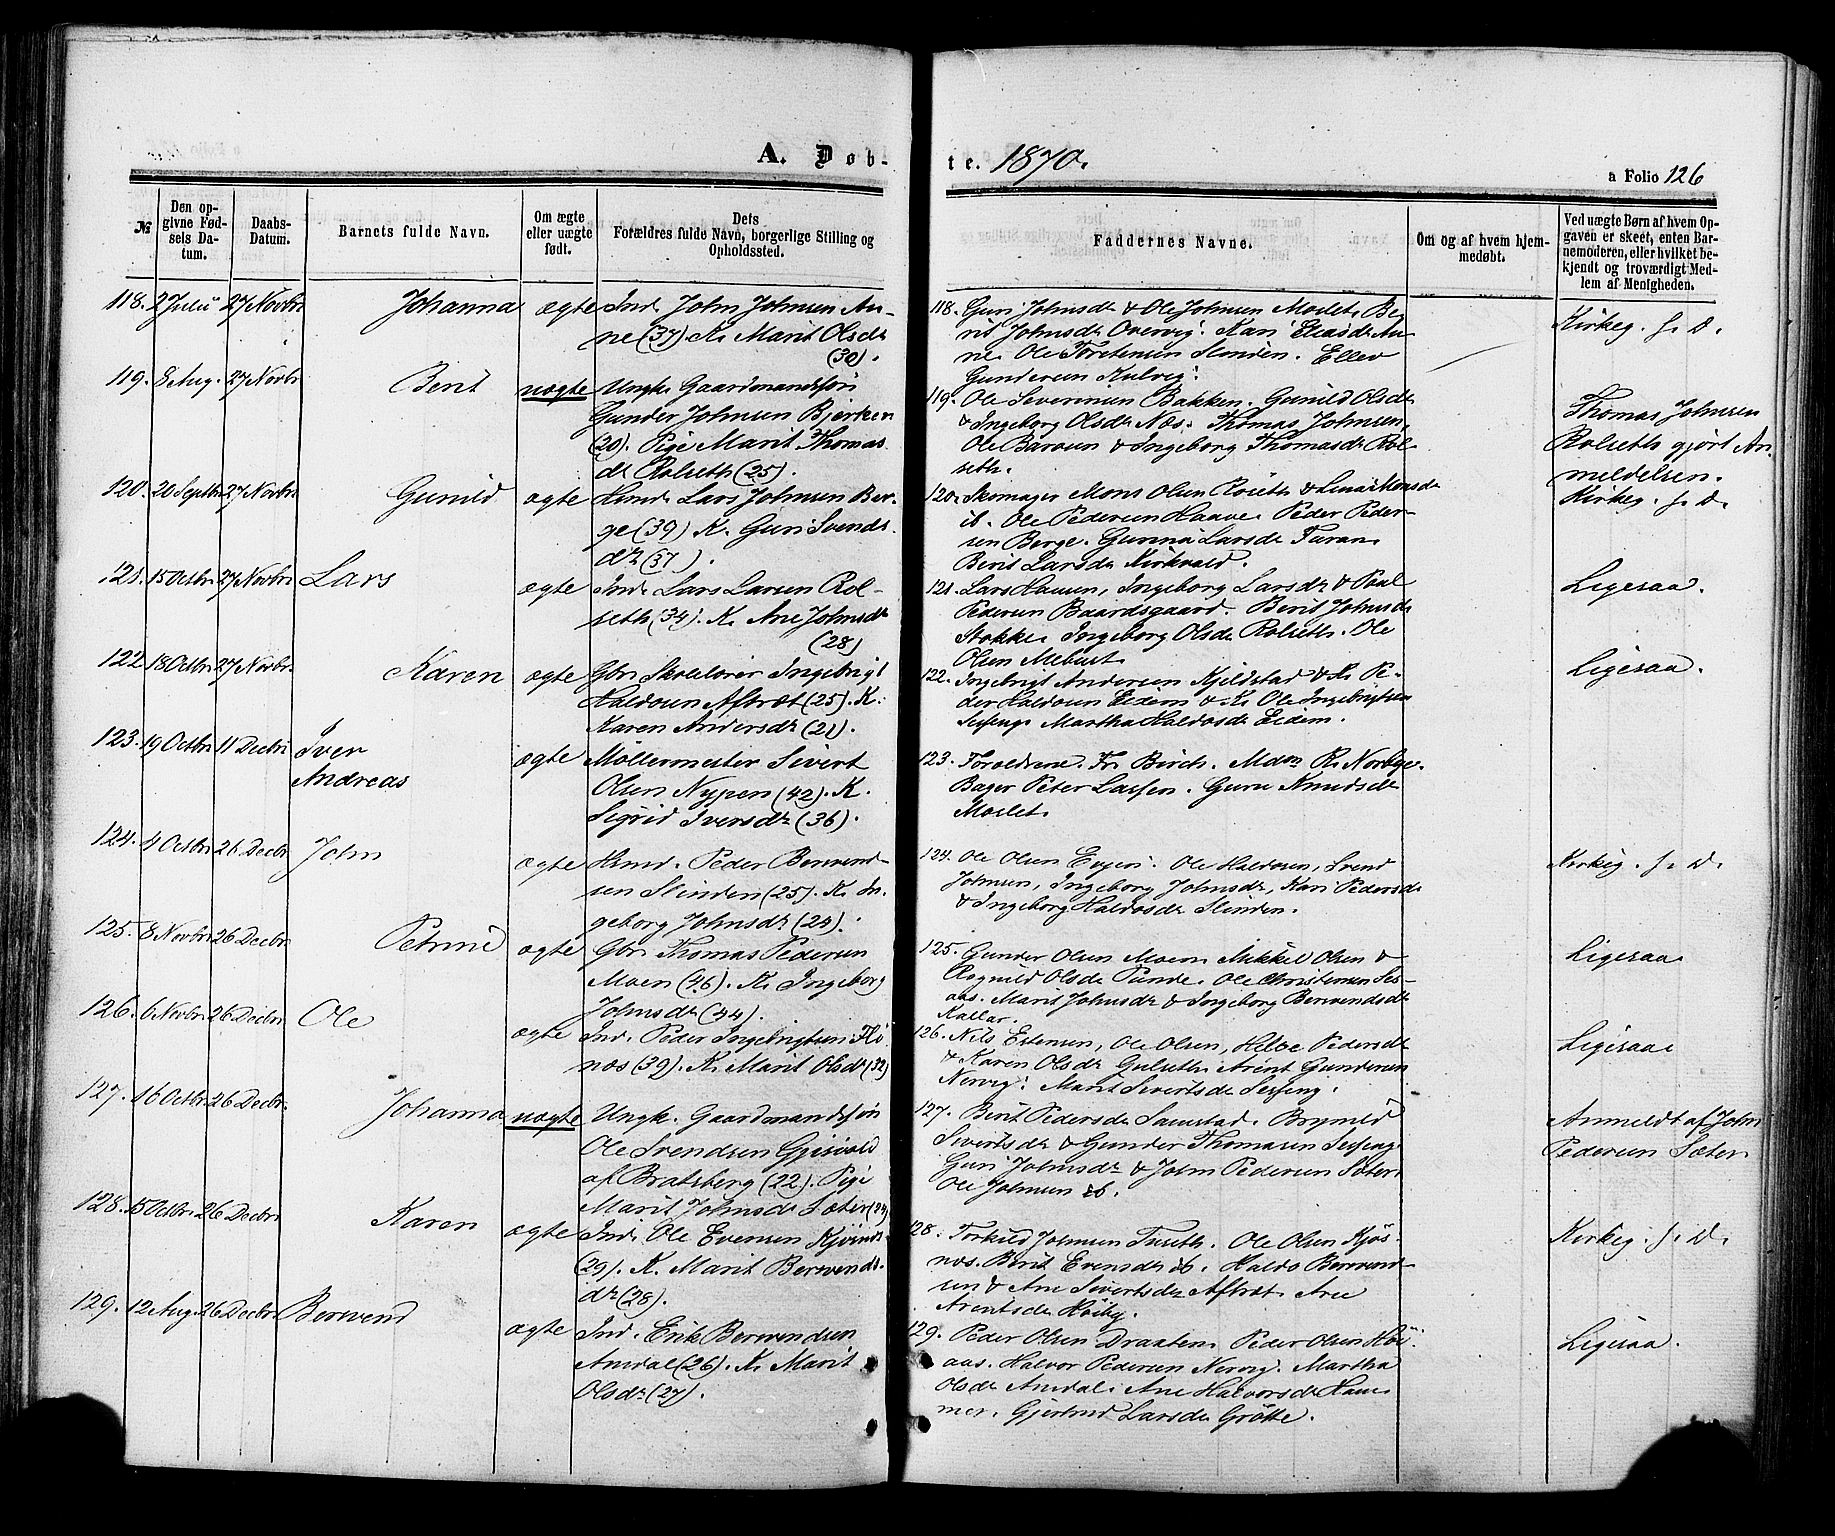 A. Døbte. 1870.
a Folio 126
№
Den opgivne Fødsels Datum.
Daabs-Datum.
Barnets fulde Navn.
Om ægte eller uægte født.
Dets Forældres fulde Navn, borgerlige Stilling og Opholdssted.
Faddernes Navne.
Om og af hvem hjemmedøbt.
Ved uægte Børn af hvem Opgaven er skeet, enten Barnemoderen, eller hvilket bekjendt og troværdigt Medlem af Menigheden.
118. 2 Julii 27 Novbr Johanna ægte Ind. John Johnsen Au-
ne (37) K. Marit Olsdr
(30).
118. Guri Johnsdr & Ole Johnsen Moslet. Be-
rit Johnsdr Overvig. Kari Eliasdr Au-
ne. Ole Torstensen Slinden. Ellev
Gundersen Kulvig.
Kirkeg. f. D.
119. 8 Aug. 27 Novbr Berit uægte Ungk. Gaardmandssøn
Gunder Johnsen Bjerken
(20). Pige Marit Thomas
dr Rolseth (25).
119. Ole Severinsen Bakken. Gunild Olsdr
& Ingeborg Olsdr Næs. Thomas Johnsen,
Ole Barosen & Ingeborg Thomasdr Rol-
seth.
Thomas Johnsen
Rolseth gjort An-
meldelsen.
120. 20 Septbr 27 Novbr Gunild ægte Husmd. Lars Johnsen Ber-
ge (39) K. Guri Svends
dr (37).
120. Skomager Mons Olsen Roseth & Lina Monsdr
ib. Ole Pedersen Haave. Peder Peder-
sen Berge. Gurina Larsdr Turan.
Berit Larsdr Kirkvold.
Kirkeg. f. D.
121. 15 Octbr 27 Novbr Lars ægte Ind. Lars Larsen Rol-
seth (34). K. Ane Johnsdr
(28)
121. Lars Hansen, Ingeborg Larsdr & Paal
Pedersen Baardsgaard. Berit Johnsdr
Stokke. Ingeborg Olsdr Rolseth. Ole
Olsen Mebust.
Ligesaa.
122 18 Octbr 27 Novbr Karen ægte Gbr Skolelærer Ingebrigt
Haldosen Aftræt (25). K.
Karen Andersdr (21).
122. Ingebrigt Andersen Kjeldstad & K. Pe-
der Haldosen Eidem & K. Ole Ingebrigtsen
Sesseng. Martha Haldosdr Eidem.
Ligesaa.
123. 19 Octbr 11 Decbr Iver
Andreas ægte Møllermester Sivert
Olsen Nypen (42). K.
Sigrid Iversdr (36).
123. Forældrene. Fr. Birch. Mdm R. Norbye.
Bager Peter Lassen. Guru Knudsdr
Moslet.
124. 4 Octbr 26 Decbr John ægte Husmd. Peder Bernend-
sen Slinden (25). K. In-
geborg Johnsdr (24).
124. Ole Olsen Evjen. Ole Haldosen, Svend
Johnsen, Ingeborg Johnsdr, Kari Pedersdr
& Ingeborg Haldosdr Slinden.
Kirkeg. f. D.
125. 8 Novbr 26 Decbr Petrine ægte Gbr. Thomas Pedersen
Moen (46). K. Ingeborg
Johnsdr (44).
125. Gunder Olsen Moen. Mikkel Olsen &
Ragnild Olsdr Sunde. Ole Christensen Ses-
aas. Marit Johnsdr & Ingeborg Berwendsdr
Kallar.
Ligesaa
126. 6 Novbr 26 Decbr Ole ægte Ind. Peder Ingebrigtsen Flø-
næs (39). K. Marit Olsdr (32)
126. Nils Estensen, Ole Olsen, Helve Pedersdr
& Karen Olsdr Gulseth. Arent Gundersen
Nervig. Marit Sivertsdr Sesseng.
Ligesaa
127. 16 Octbr 26 Decbr. Johanna uægte Ungk. Gaardmandssøn
Ole Svendsen Gjisvold
af Bratsberg (22). Pige
Marit Johnsdr Sæter (24)
127. Berit Pedersdr Samstad. Brynild
Sivertsdr & Gunder Thomasen Sesseng
Guri Johnsdr & John Pedersen Sæter.
Ole Johnsen ib.
Anmeldt af John
Pedersen Sæter
128. 15 Octbr 26 Decbr Karen ægte Ind. Ole Evensen Kjøsnæs
(29). K. Marit Berwends-
dr (28).
128. Torkild Johnsen Tuseth. Ole Olsen Kjøs-
næs. Berit Evensdr ib. Haldo Berwend-
sen & Ane Sivertsdr Aftræt. Ane
Arentsdr Høiby.
Kirkeg. f. D.
129. 12 Aug. 26 Decbr. Berwend ægte Ind. Erik Berwendsen
Amdal (26). K. Marit
Olsdr (27).
129. Peder Olsen Draxten. Peder Olsen Høi-
aas. Halvor Pedersen Nervig. Martha
Olsdr Amdal. Ane Halvorsdr Ham-
mer. Gjertrud Larsdr Grøtte.
Ligesaa.